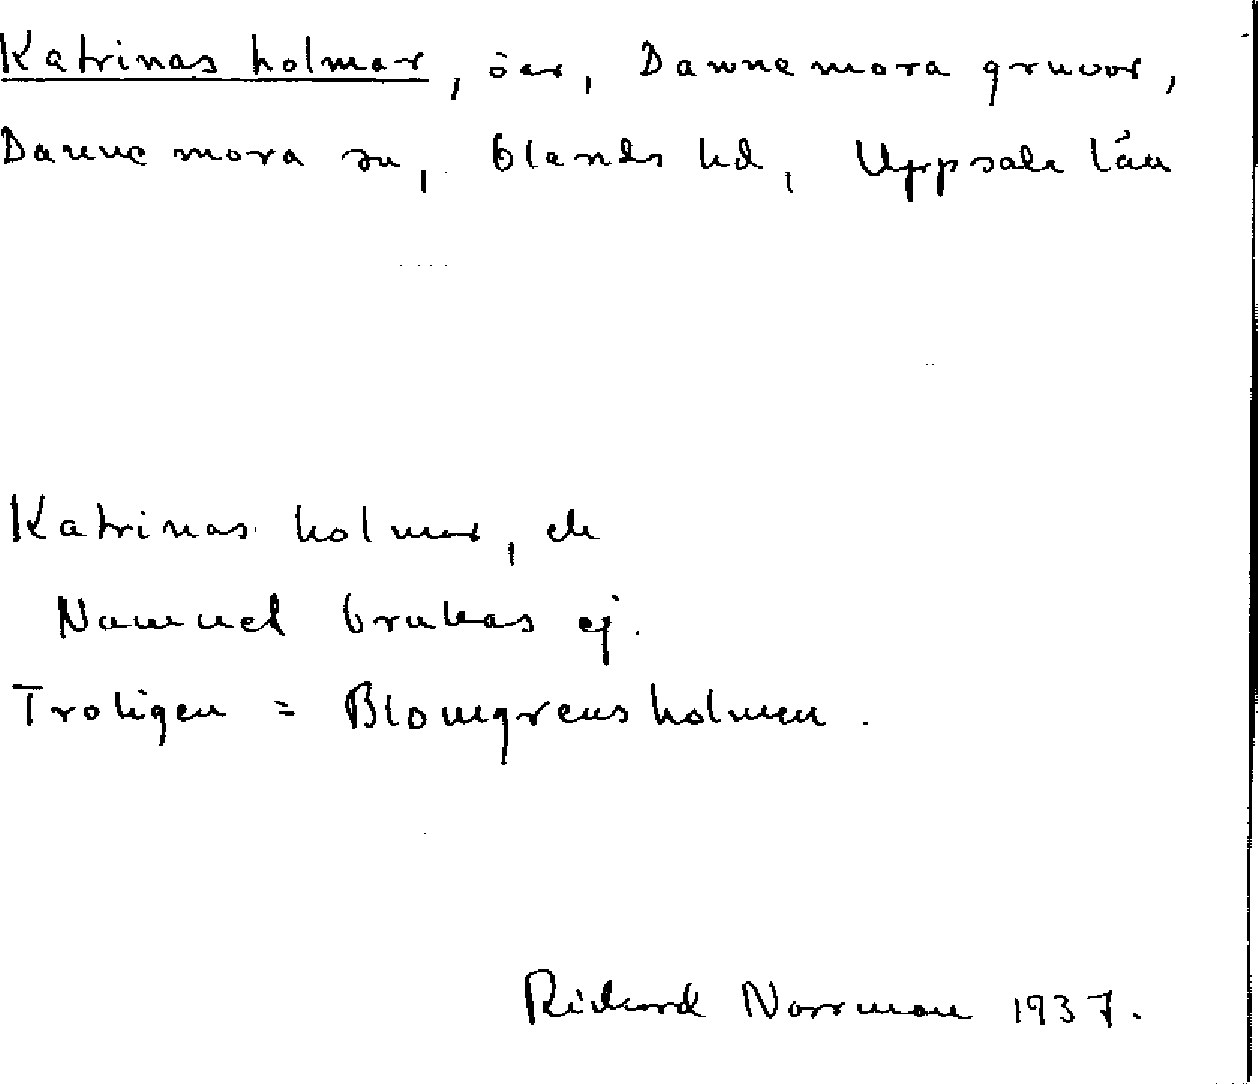 Katrinas holmar, öar, Dannemora gruvor,
Dannemora sn, Olands hd, Uppsala län
Katrinas holmar, ek
Namnet brukas ej.
Troligen = Blomgrensholmen.
Rickard Norrman 1937.